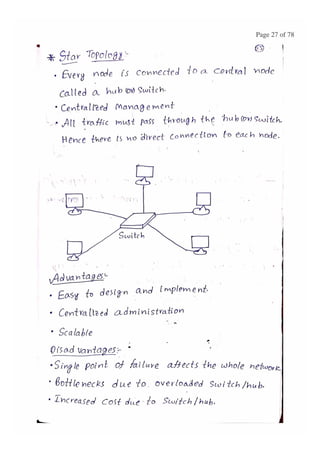 Page 27 of 78
* Star Topology:-
• Every node is connected to a central node
called a hub (or) switch.
• Centralized management
• All traffic must pass through the hub (or) switch.
Hence there is no direct connection to each node.
Switch
Advantages:-
• Easy to design and implement.
• Centralized administration
• Scalable
Disadvantages:-
• Single point of failure affects the whole network.
• Bottlenecks due to overloaded switch/hub.
• Increased cost due to switch/hub.